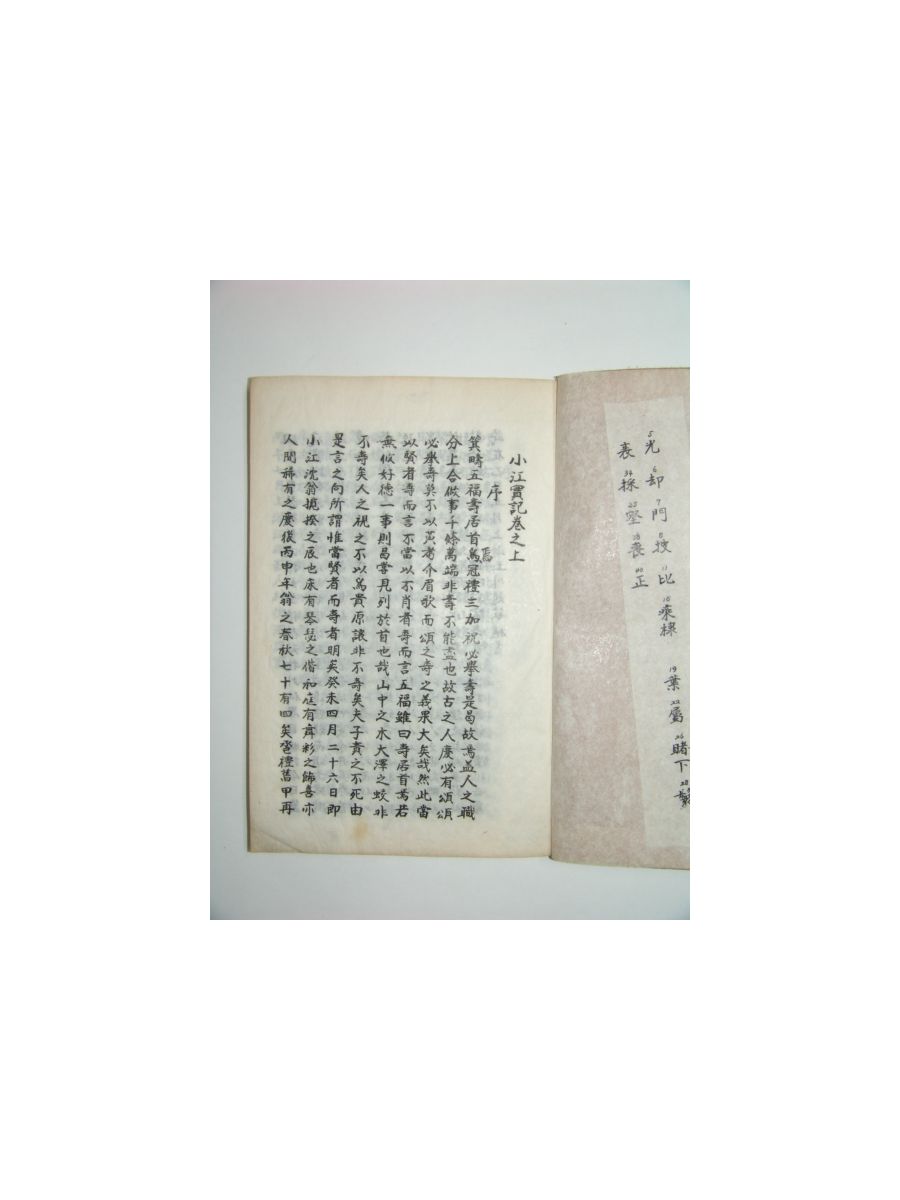 光 却 門 披 比 乘 棣 葉 屬 睹 下
5 6 7 8 11 15 19 22 26 28
喪 採 堅 喪 正
34
小江實記卷之上
序
箕疇五福壽居首焉冠禮三加祝必擧壽是曷故焉盖人之職
分上合做事千條萬端非壽不能盡也故古之人慶必有頌頌
必擧壽莫不以黃耇介眉歌而頌之壽之義果大矣哉然此當
以賢者壽而言不當以不肖者壽而言五福雖曰壽居首焉若
無攸好德一事則曷嘗見列於首也哉山中之木大澤之蛟非
不壽矣人之視之不以爲貴原讓非不壽矣夫子責之不死由
是言之向所謂惟當賢者而壽者明矣癸未四月二十六日即
小江沈翁 揆之辰也床有琴瑟之偕和庭有舞彩之餙喜亦
人間稀有之慶後丙申年翁之春秋七十有四矣 禮舊甲再